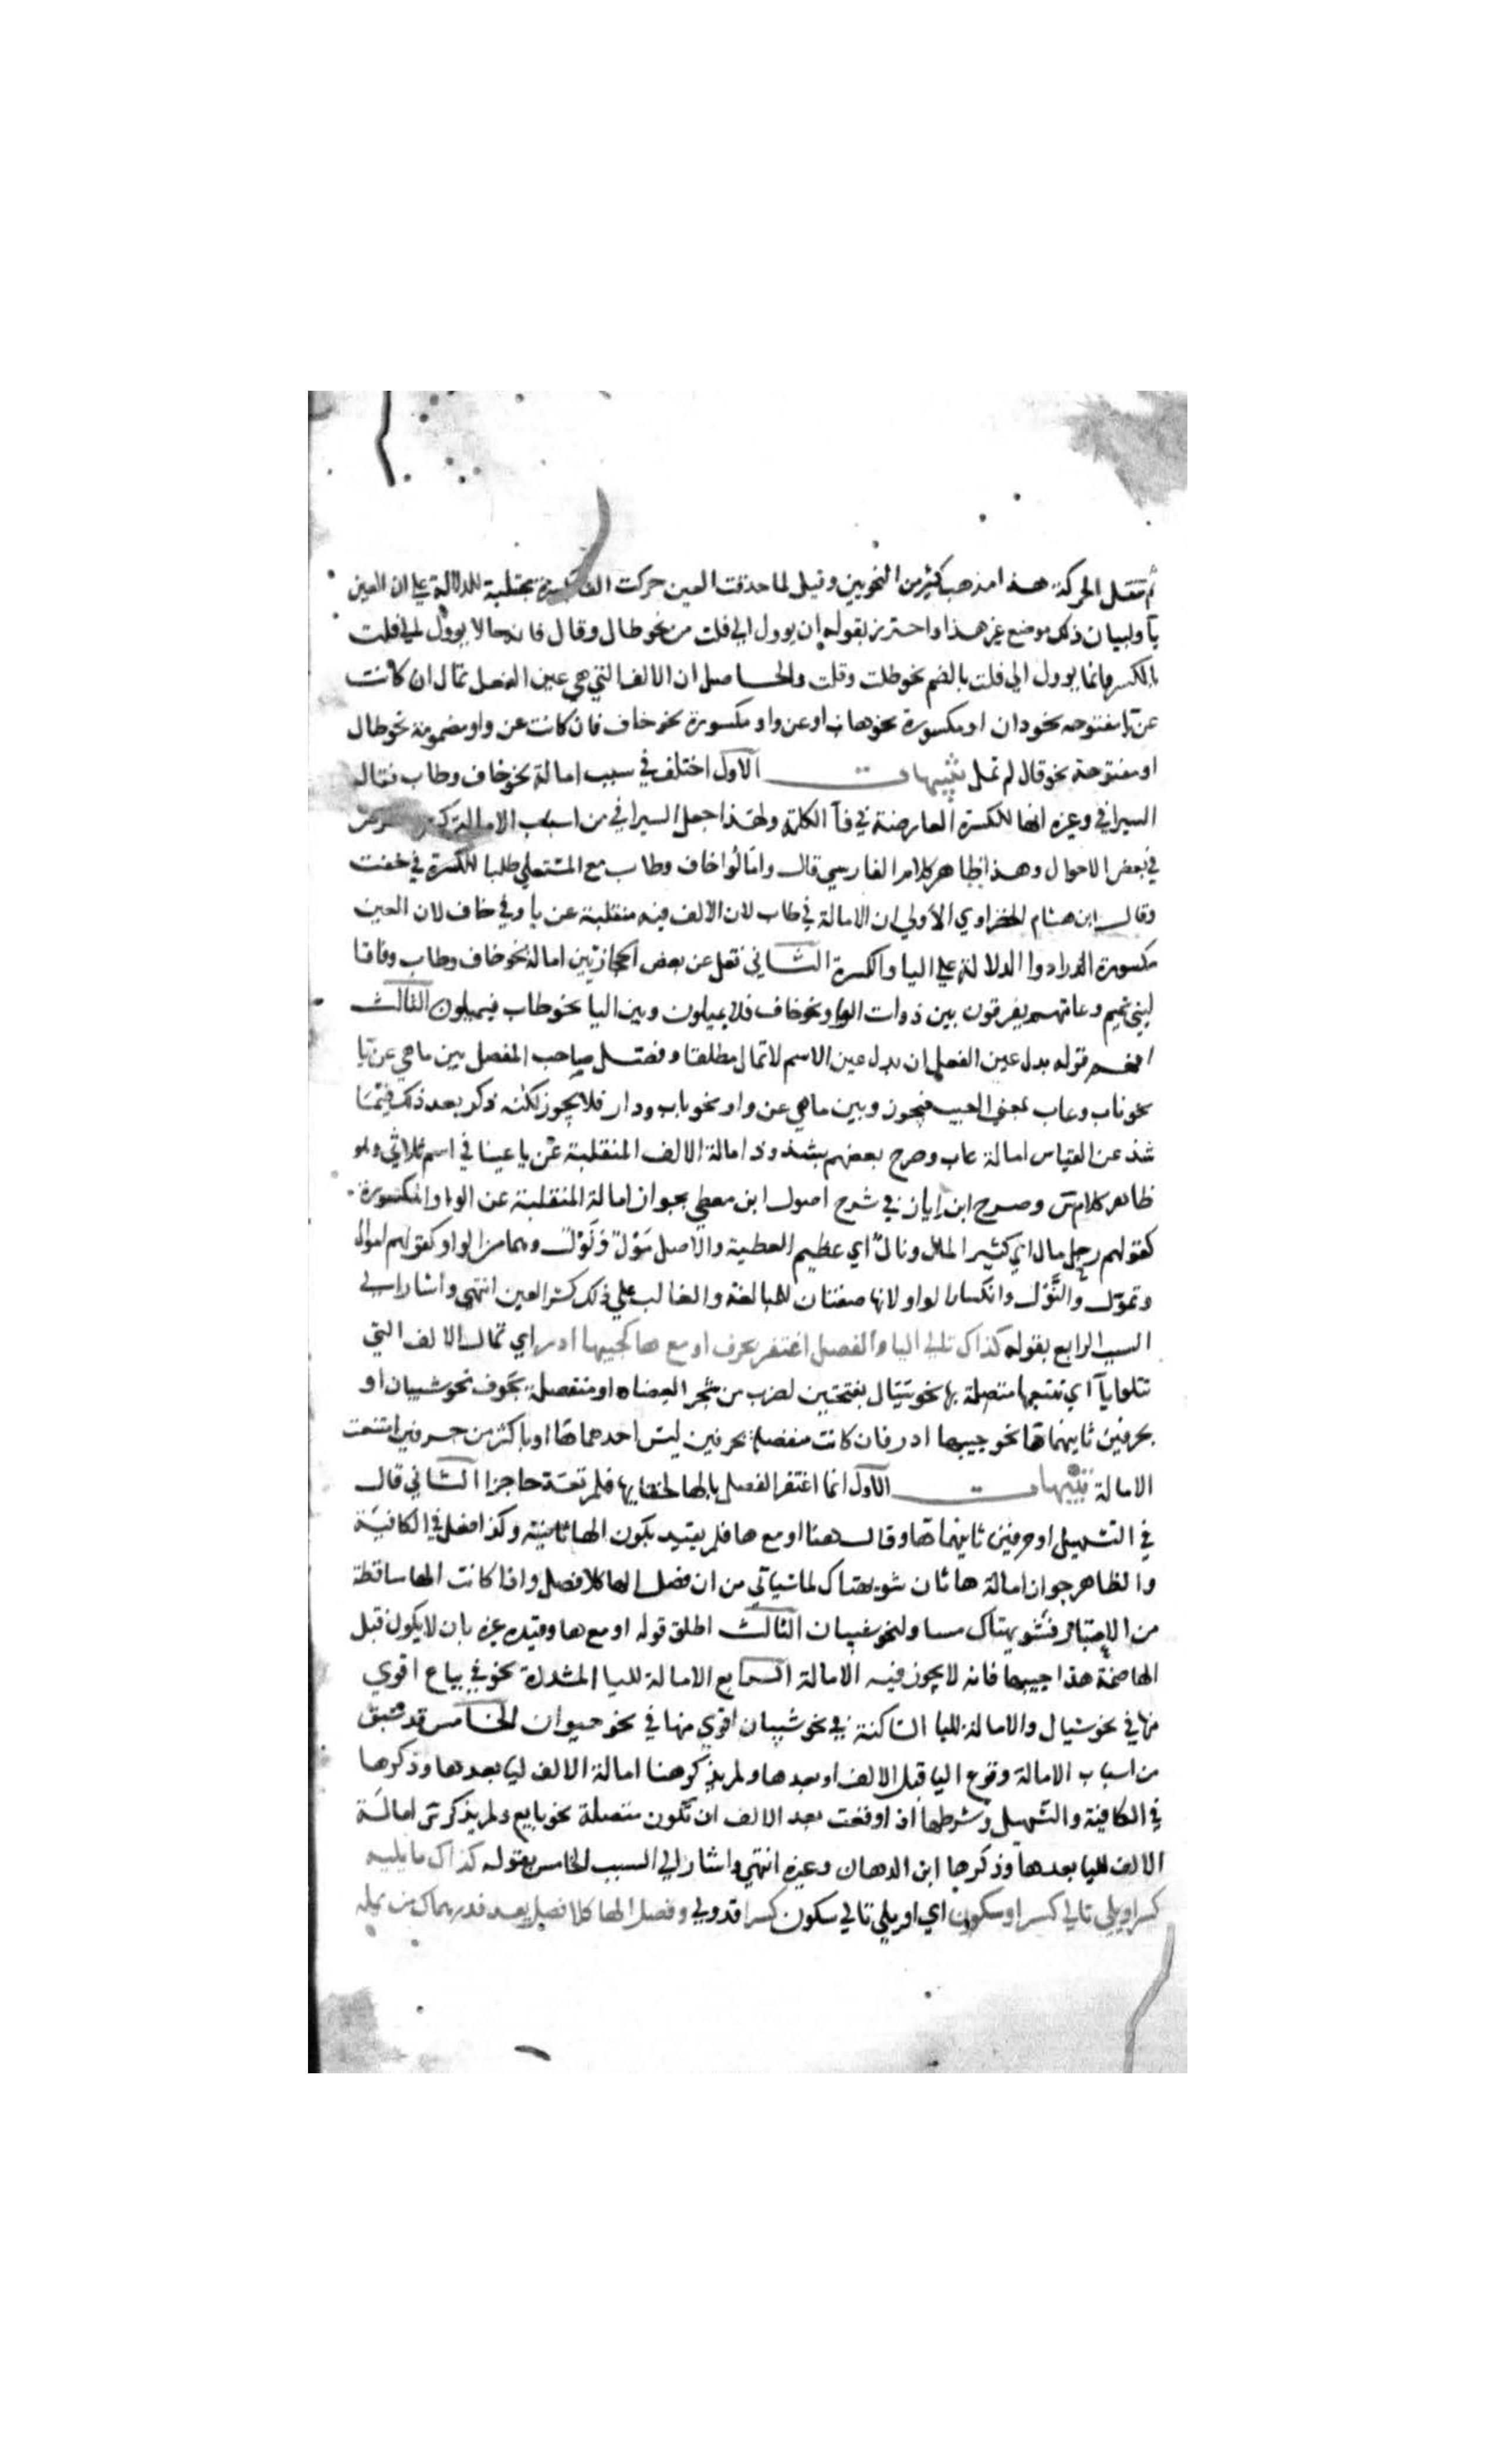 ثم تنقل الحركة هذا مذهب كثير من النحويين وقيل لما حذفت العين حركت الفا بكسرة مجتلبة للدلالة علي ان العين
يا ولبيان ذلك موضع غير هذا واحترز بقوله ان يوول الي فلت من نحو طال وقال فانه لا يوول الي فلت
بالكسر وانما يوول الي فلت بالضم نحو طلت وقلت والحاصل ان الالف التي هي عين الفعل تمال ان كانت
عن يا مفتوحه نحو دان او مكسورة نحو هاب او عن واو مكسورة نحو خاف فان كانت عن واو مضمومة نحو طال
او مفتوحة نحو قال لم تمل تنبيهات الاول اختلف في سبب امالة نحو خاف وطاب فقال
السيرافي وغيره انها للكسرة العارضة في فآ الكلمة ولهذا جعل السيرافي من اسباب الامالة
في بعض الاحوال وهذا ظاهر كلام الفارسي قال وامالوا خاف وطاب مع المستعلي طلبا للكسرة في خفت
وقال ابن هشام الخضراوي الأولي ان الامالة في طاب لان الالف فيه منقلبة عن يا وفي خاف لان العين
مكسورة ارادوا الدلالة علي اليا والكسرة الثاني نقل عن بعض الحجازيين امالة نحو خاف وطاب وفاقا
لبني تميم وعامتهم يفرقون بين ذوات الواو نحو خاف فلا يميلون وبين اليا نحو طاب فيميلون الثالث
افهم قوله بدل عين الفعل ان بدل عين الاسم لا تمال مطلقا وفصل صاحب المفصل بين ما هي عن يا
نحو ناب وعاب بمعني العيب فيجوز وبين ما هي عن واو نحو باب ودار فلا يجوز لكنه ذكر بعد ذلك فيما
شذ عن القياس امالة عاب وصرح بعضهم بشذوذ امالة الالف المنقلبة عن يا عينا في اسم ثلاثي وهو
ظاهر كلام س وصرح ابن إياز في شرح اصول ابن معطي بجواز امالة المنقلبة عن الواو المكسورة
كقولهم رجل مال اي كثير المال ونال اي عظيم العطية والاصل مول ونول وهما من الواو كقولهم اموال
وتمول والنول وانكسار الواو لانها صفتان للمبالغة والغالب علي ذلك كسر العين انتهي واشار الي
السبب الرابع بقوله كذاك تالي اليا والفصل اغتفر بحرف او مع ها كجيبها ادر اي تمال الالف التي
تتلو يآ اي تتبعها متصلة بها نحو سيال بفتحتين لضرب من شجر العضاه او منفصلة بحرف نحو شيبان او
بحرفين ثانيهما ها نحو جيبها ادر فان كانت منفصلة بحرفين ليس احدهما ها او باكثر من حرفين امتنعت
الامالة تنبيهات الاول انما اغتفر الفصل بالها لخفايها فلم تعد حاجزا الثاني قال
في التسهيل او حرفين ثانيهما ها وقال هنا او مع ها فلم يقيد بكون الها ثانية وكذا فعل في الكافية
والظاهر جواز امالة هاتان شويهتاك لما سياتي من ان فصل الها كلا فصل واذا كانت الها ساقطة
من الاعتبار فشويهتاك مساو لنحو شيبان الثالث اطلق قوله او مع ها وقيده غيره بان لا يكون قبل
الها ضمة هذا جيبها فانه لا يجوز فيه الامالة الرابع الامالة لليا المشددة نحو في بياع اقوي
منها في نحو سيال والامالة لليا الساكنة في نحو شيبان اقوي منها في نحو حيوان الخامس قد سبق
من اسباب الامالة وقوع اليا قبل الالف او بعدها ولم يذكر هنا امالة الالف ليا بعدها وذكرها
في الكافية والتسهيل وشرطها اذا وقعت بعد الالف ان تكون متصلة نحو بايع ولم يذكر س امالة
الالف لليا بعدها وذكرها ابن الدهان وغيره انتهي واشار الي السبب الخامس بقوله كذاك ما يليه
كسر او يلي تالي كسر او سكون اي او يلي تالي سكون كسرا قد ولي وفصل الها كلا فصل يعد فدرهماك من يمله